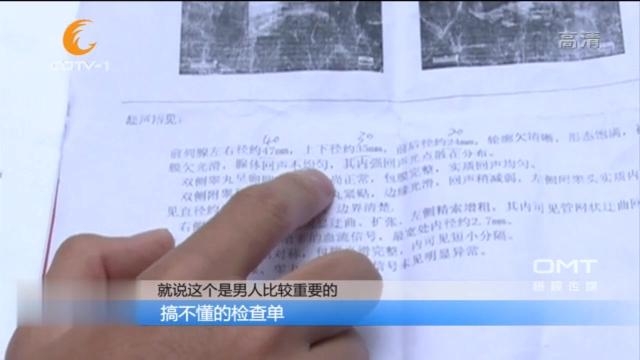 CDTV-1
高清
超声所见:
40 30 20
前列腺左右径约47mm, 上下径约35mm, 前后径约24mm, 轮廓欠清晰, 形态饱满,
膜欠光滑, 腺体回声不均匀, 其内强回声光点散在分布。
双侧睾丸呈 尚正常, 包膜完整, 实质回声均匀。
双侧附睾 丸紧贴, 边缘光滑, 回声稍减弱, 左侧附睾头实质内
见直径约 边界清楚。
右侧 迂曲、扩张, 左侧精索增粗, 其内可见管网状迂曲回
的血流信号, 最宽处内径约2.7mm。
对称, 包膜 完整, 内可见短小分隔。
信号未见明显异常。
OMT
就说这个是男人比较重要的
搞不懂的检查单